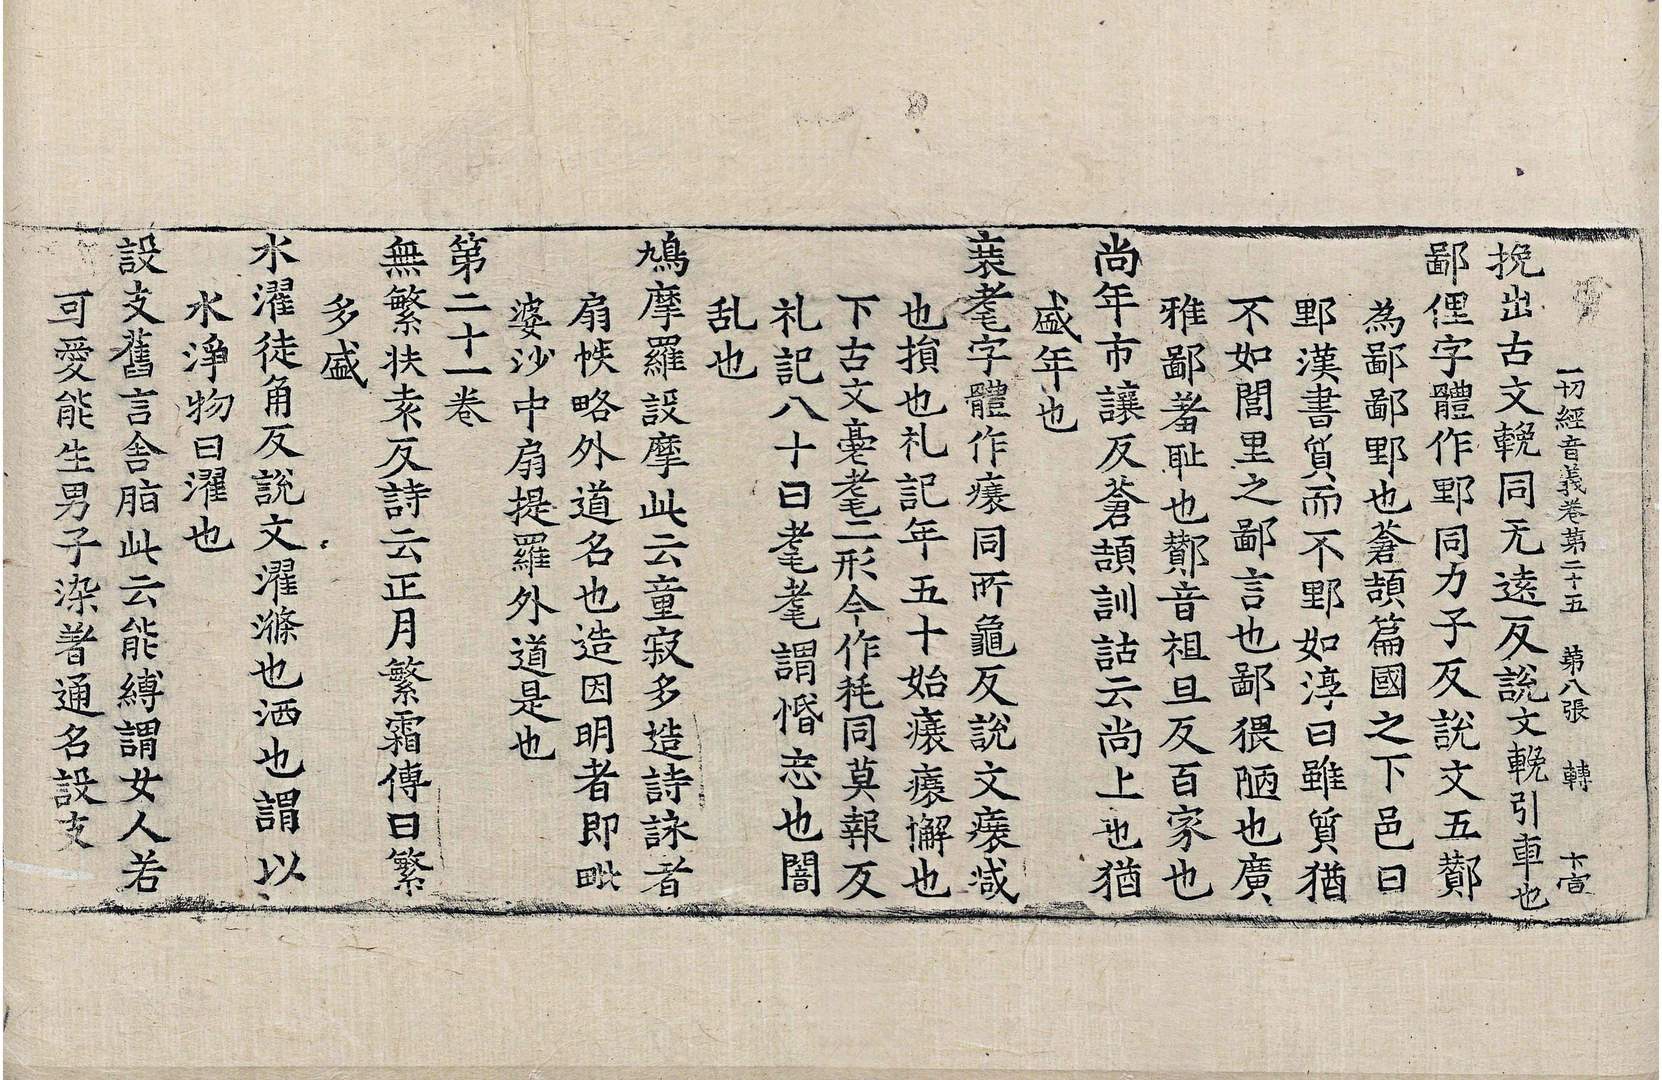 一切經音義卷第二十五 第八張 轉
挽出古文輓同无遠反說文輓引車也
鄙俚字體作野同力子反說文五酇
為鄙鄙野也蒼頡篇國之下邑曰
野漢書質而不野如淳曰雖質猶
不如閭里之鄙言也鄙猥陋也廣
雅鄙羞恥也酇音祖旦反百家也
尚年市讓反蒼頡訓詁云尚上也猶
盛年也
衰耄字體作㾕同所龜反說文㾕減
也損也礼記年五十始㾕㾕懈也
下古文𦒷耄二形今作秏同莫報反
礼記八十曰耄耄謂惛忘也闇
乱也
鳩摩羅設摩此云童寂多造詩詠者
扇帙略外道名也造因明者即毗
婆沙中扇提羅外道是也
第二十一卷
無繁扶袁反詩云正月繁霜傳曰繁
多盛
水濯徒角反說文濯滌也洒也謂以
水淨物曰濯也
設支舊言舍脂此云能縛謂女人若
可愛能生男子染著通名設支